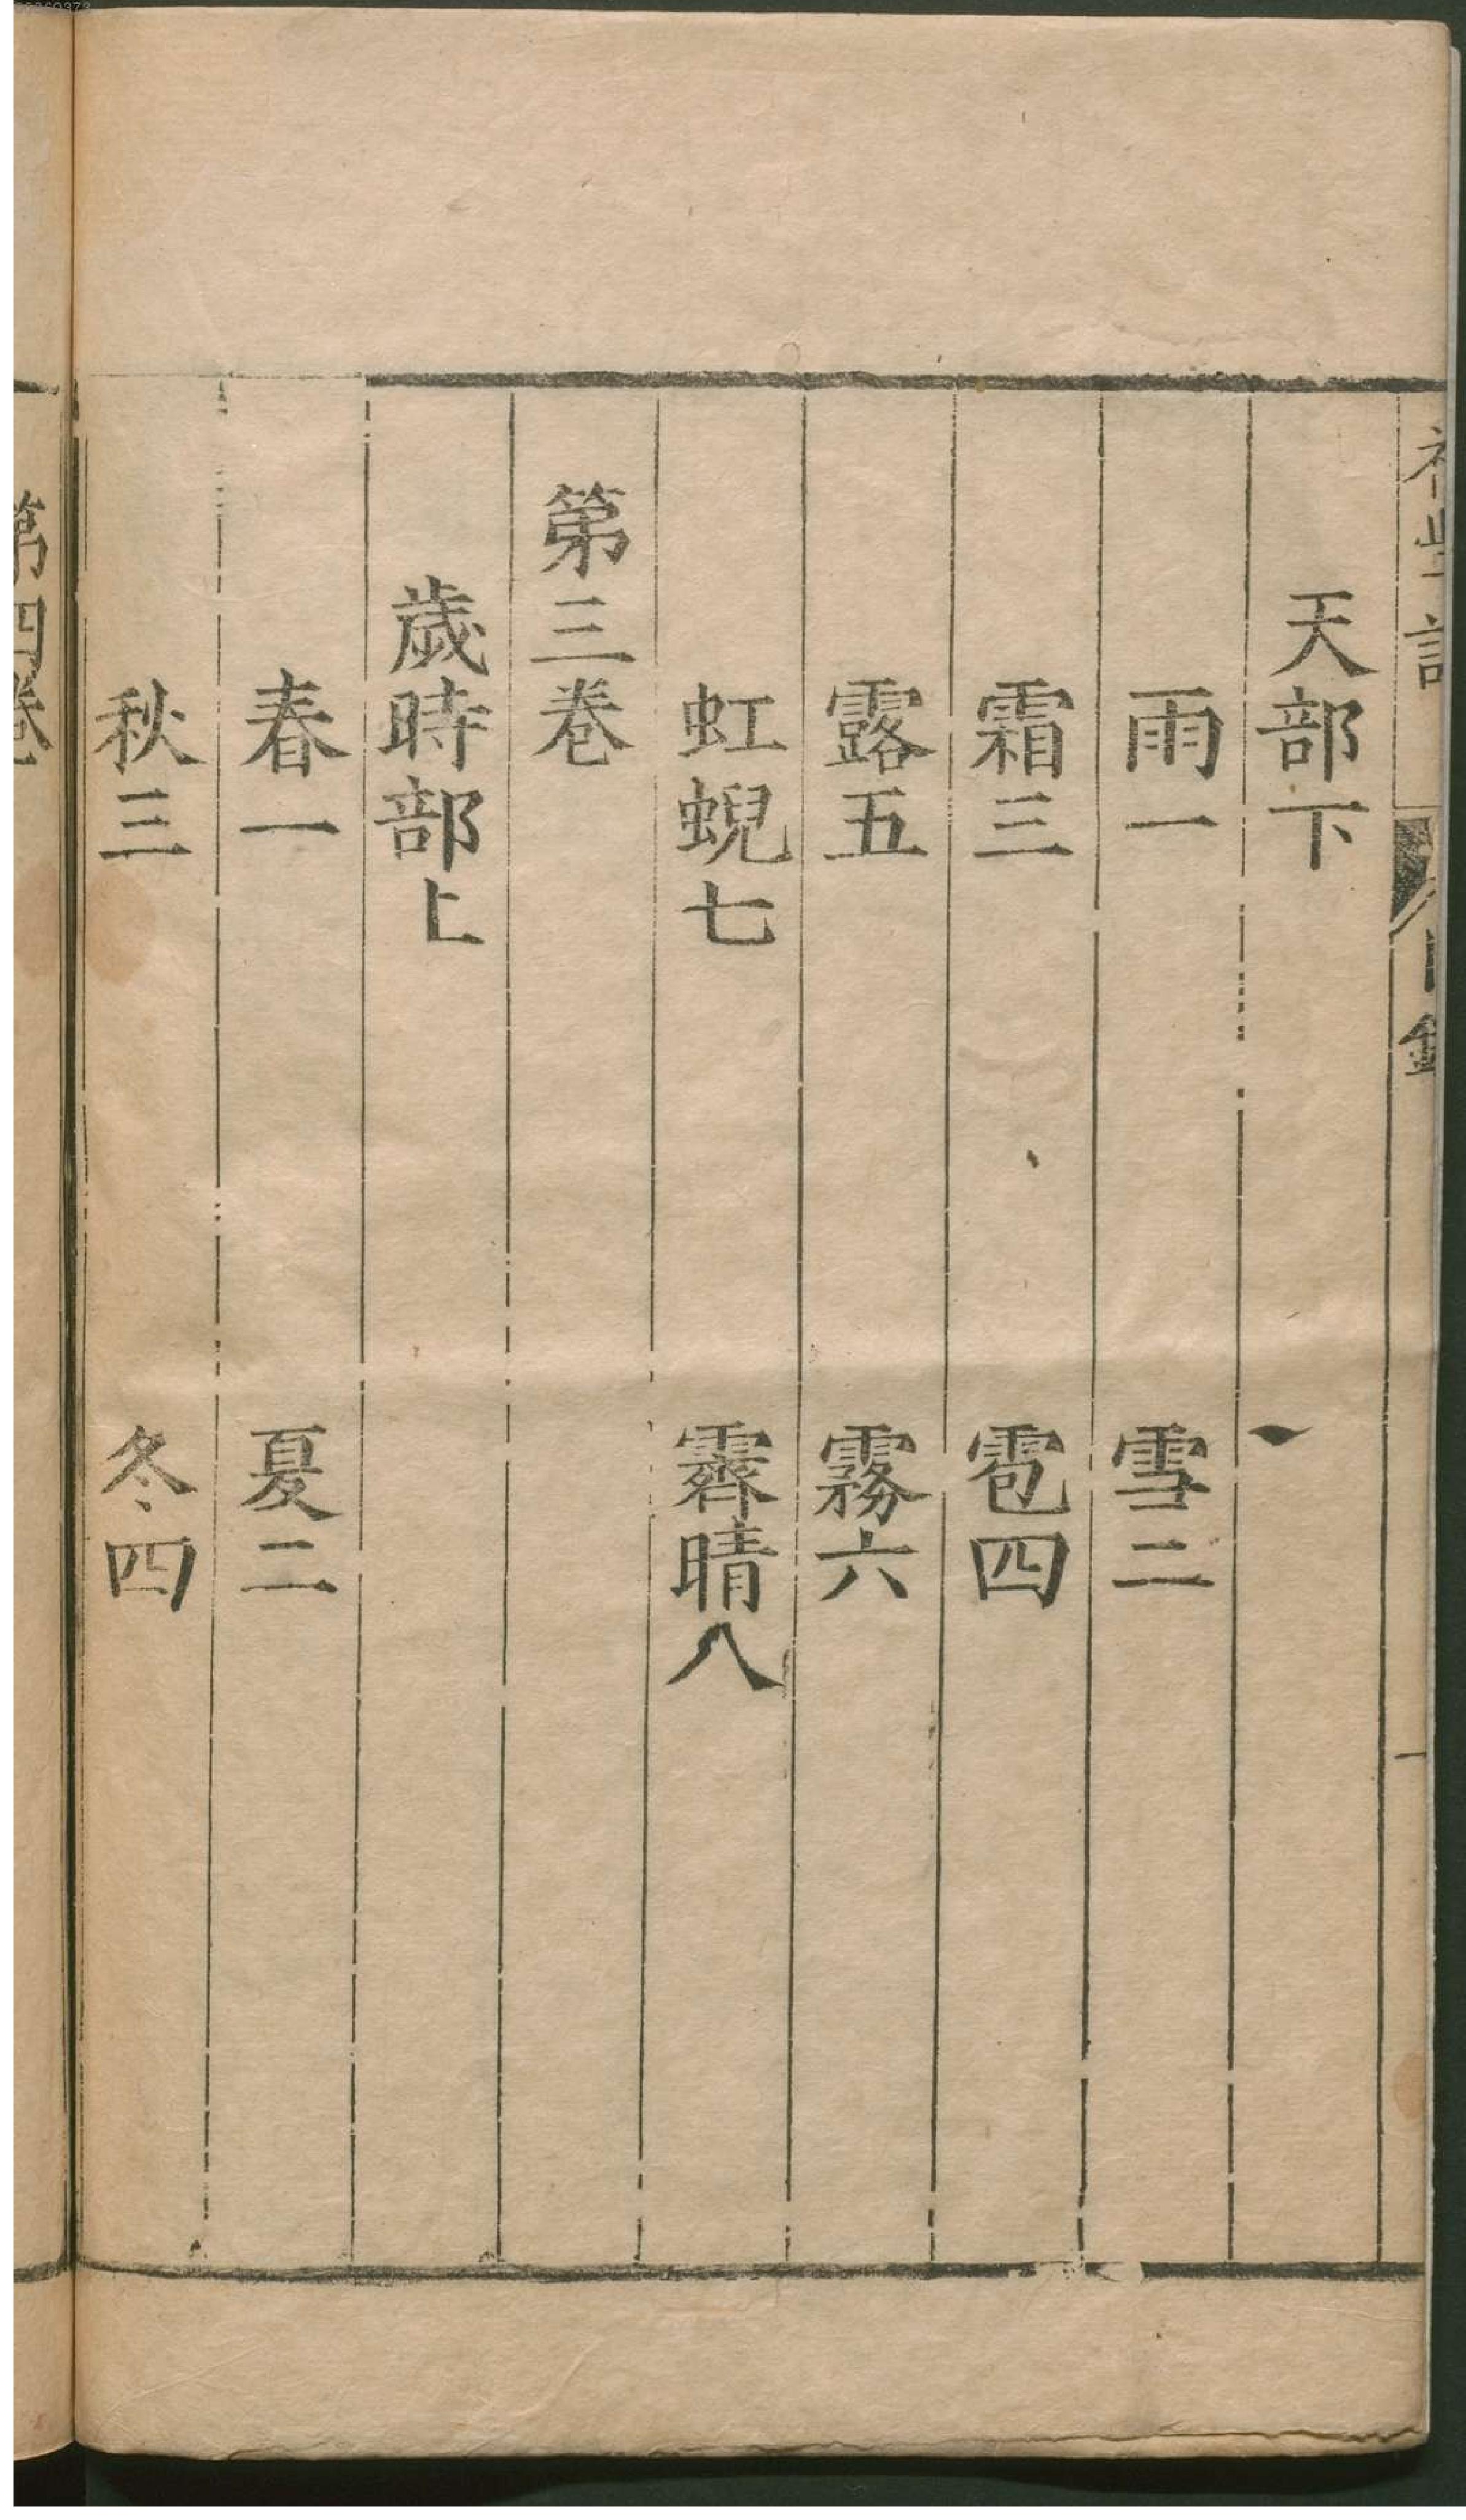 天部下
雨一 雪二
霜三 雹四
露五 霧六
虹蜺七 霽晴八
第三卷
歲時部上
春一 夏二
秋三 冬四
第四卷